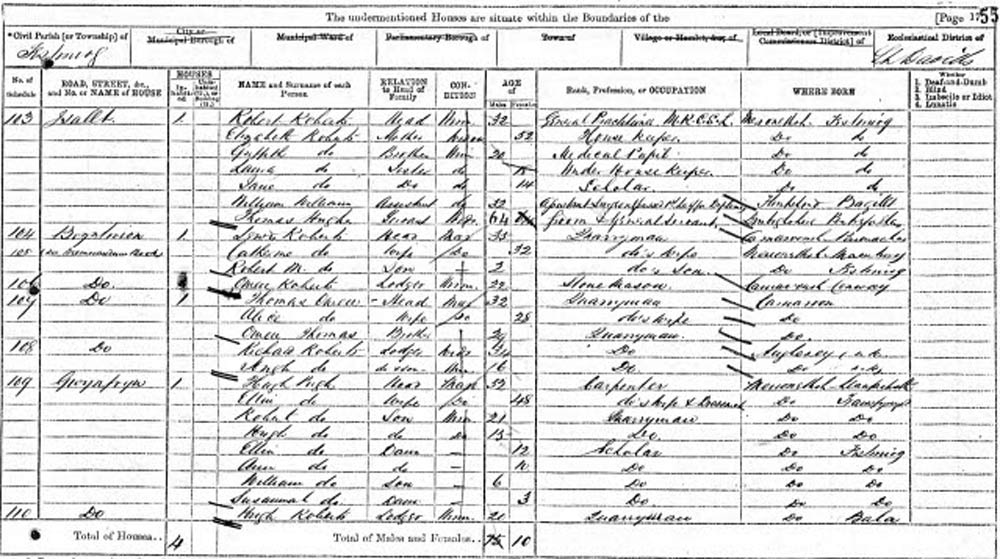 The undermentioned Houses are situate within the Boundaries of the [Page 17 55
*Civil Parish [or Township] of City or Municipal Borough of Municipal Ward of Parliamentary Borough of Town of Village or Hamlet, &c., of Local Board, or [Improvement Commissioners District] of Ecclesiastical District of
Ffestiniog St Davids
No. of Schedule ROAD, STREET, &c., and No. or NAME of HOUSE HOUSES Inhabited Uninhabited (U.), or Building (B.) NAME and Surname of each Person RELATION to Head of Family CONDITION AGE of Males Females Rank, Profession, or OCCUPATION WHERE BORN Whether 1. Deaf-and-Dumb 2. Blind 3. Imbecile or Idiot 4. Lunatic
103 Isallt 1 Robert Roberts Head Unm. 32 General Practitioner M.R.C.S.L. Merioneth Festiniog
Elizabeth Roberts Mother 52 House Keeper Do do
Griffith do Brother Unm 20 Medical Pupil Do do
Laura do Sister do Under House Keeper Do do
Jane do Do do 14 Scholar Do do
William Williams Assistant do 32 Flintshire Bagillt
Thomas Hughes Servant 64 Groom & General Servant
104 1 Lewis Roberts Head Mar 35 Quarryman Carnarvonsh.
105 Catherine do Wife Do 32 do's wife Merionethsh.
Robert M. do Son 2 do's Son Do Festiniog
106 Do. Owen Roberts Lodger Unm. 22 Stone Mason Carnarvonsh Conway
107 Do 1 Thomas Owen Head Mar 32 Quarryman Carnarvon
Alice do Wife Do 28 do's wife Do
Owen Thomas Brother Quarryman Do
108 Do Richard Roberts Lodger Do Anglesey n.k.
Hugh do do son Unm 16 Do Do n.k.
109 1 Hugh Pugh Head Mar 52 Carpenter Merionethsh
Ellin do Wife Do 48 do's wife & Do Trawsfynydd
Robert do Son Unm 21 Quarryman Do Do
Hugh do do Do 15 Do. Do Do
Ellin do Daur – 12 Scholar Do Festiniog
Ann do do – 10 Do Do Do
William do Son – 6 Do Do Do
Susannah do Daur – 3 Do Do Do
110 Do Hugh Roberts Lodger Unm. 21 Quarryman Do Bala
Total of Houses.. 4 Total of Males and Females.. 15 10